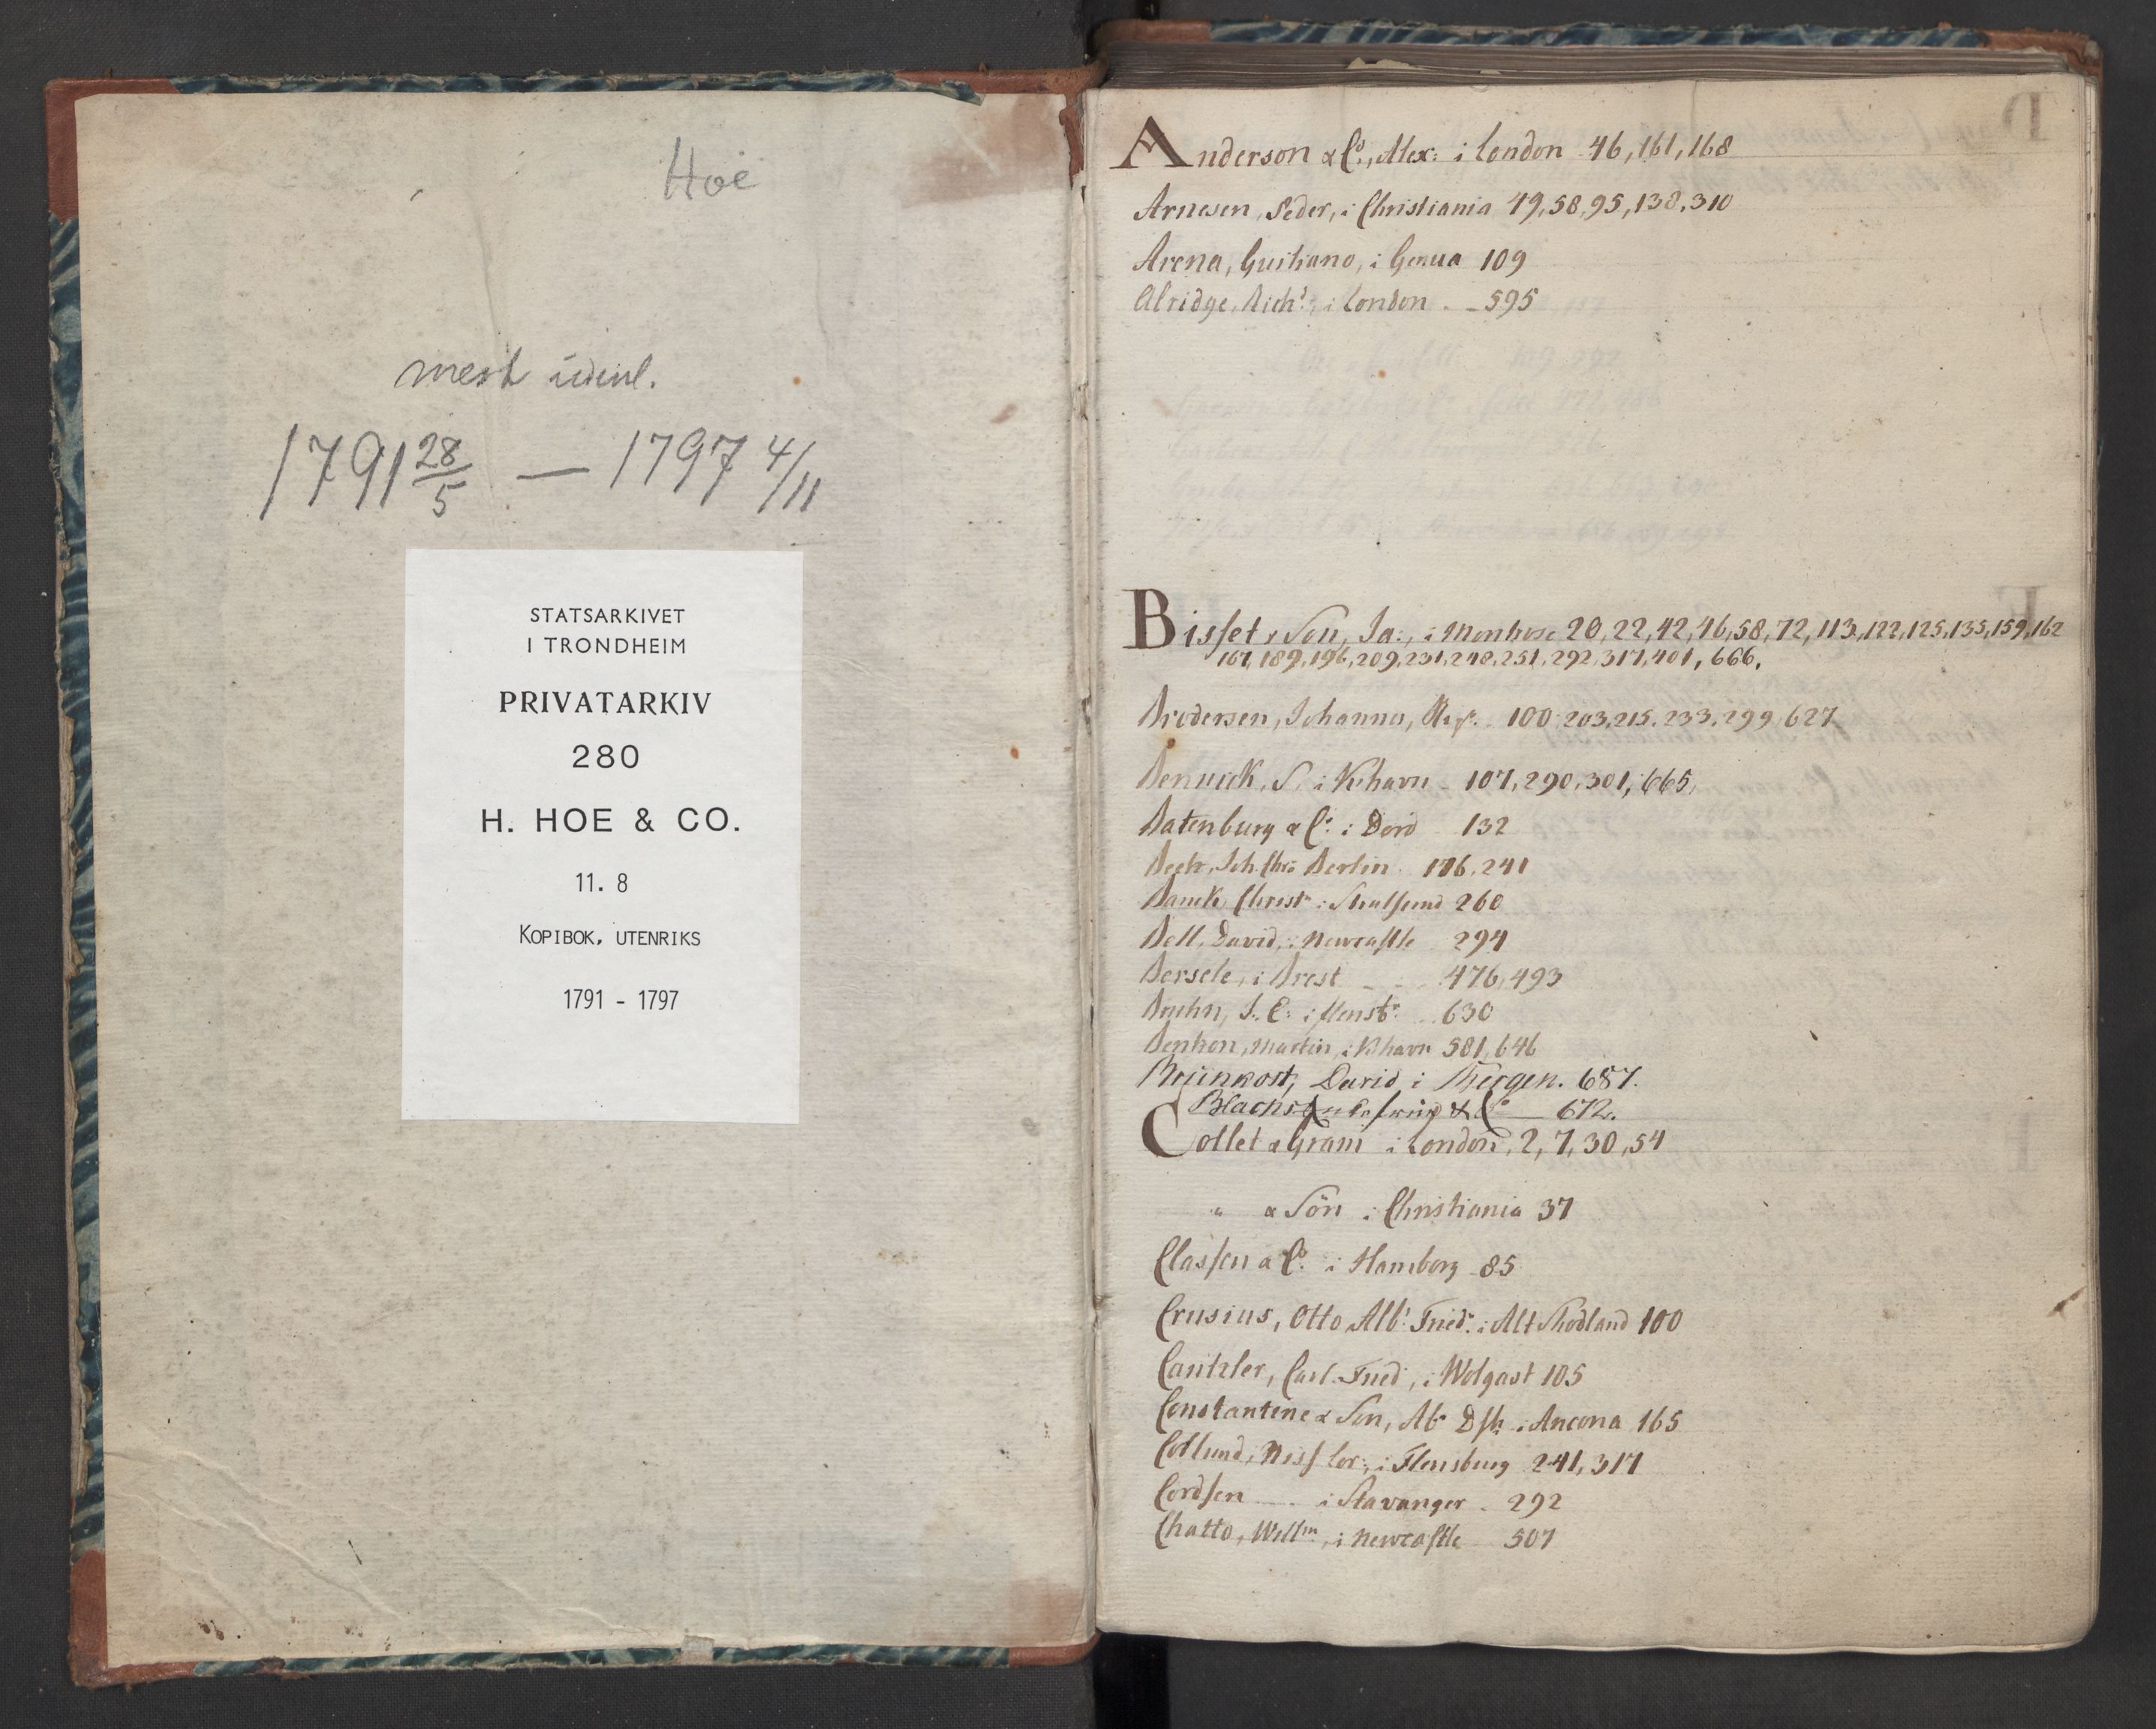 Hoe
mest udenl.
1791 28/5 — 1797 4/11
STATSARKIVET
I TRONDHEIM
PRIVATARKIV
280
H. HOE & CO.
11. 8
KOPIBOK, UTENRIKS
1791 - 1797
Anderson & Co., Alex: i London 46, 161, 168
Arnesen, Peder, i Christiania 49, 58, 95, 138, 310
Arena, Gustiano, i Genua 109
Alridge, Richd: i London - 595
Bisset & Son, Ja:, i Montrose 20, 22, 42, 46, 58, 72, 113, 122, 125, 135, 159, 162
167, 189, 196, 209, 231, 248, 251, 292, 317, 401, 666,
Brodersen, Johannes, 100, 203, 215, 233, 299, 627
Benwick, S. i Khavn - 107, 290, 301, 665,
Batenburg & Co: i Dord 132
Beck, Joh. Chr: Berlin 241
Banck, Christn: i Stralsund 260
Bell, David, i Newcastle 294
Bersele, i Brest - 476, 493
Bruhn, J. C: i 630
Benhon, Martin, i Khavn 581, 646
Brünkorst, David i Bergen. 687.
& Co — 672.
Collet & Gram i London, 2, 7, 30, 54
" & Sön i Christiania 37
Classen & Co. i Hamborg 85
Crusius, Otto Albt: Friedr: i Alt 100
Cantzler, Carl Fried, i Wolgast 105
Constantine & Son, Ab: i Ancona 165
Collund, Niss Lor:, i Flensburg 241, 317
Cordsen — i Stavanger - 292
Chatto, Willm, i Newcastle 507